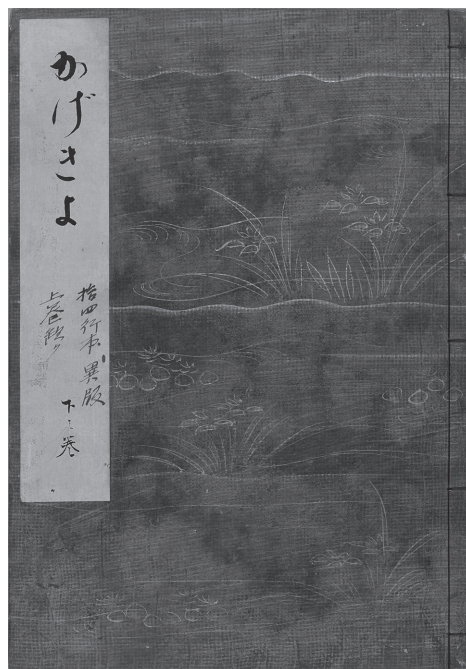 かげきよ
拾四行本異版
下之巻
上巻欠ク